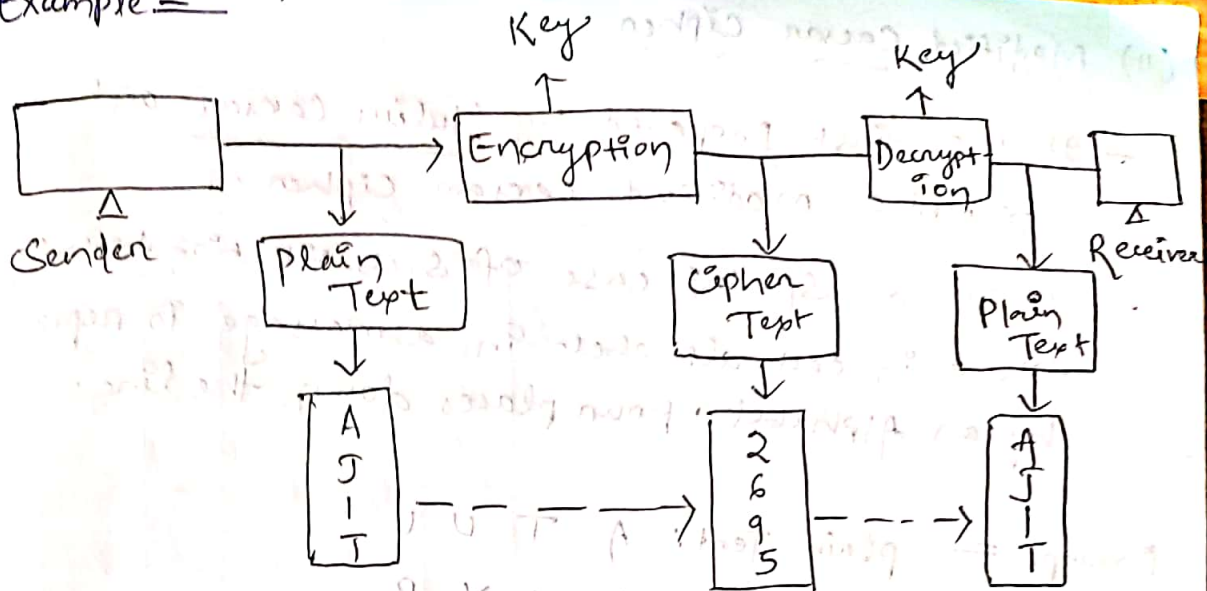 Example :—
Key
Key
Encryption
Decrypt-
ion
Sender
Receiver
Plain
Text
Cipher
Text
Plain
Text
A
J
I
T
2
6
9
5
A
J
I
T